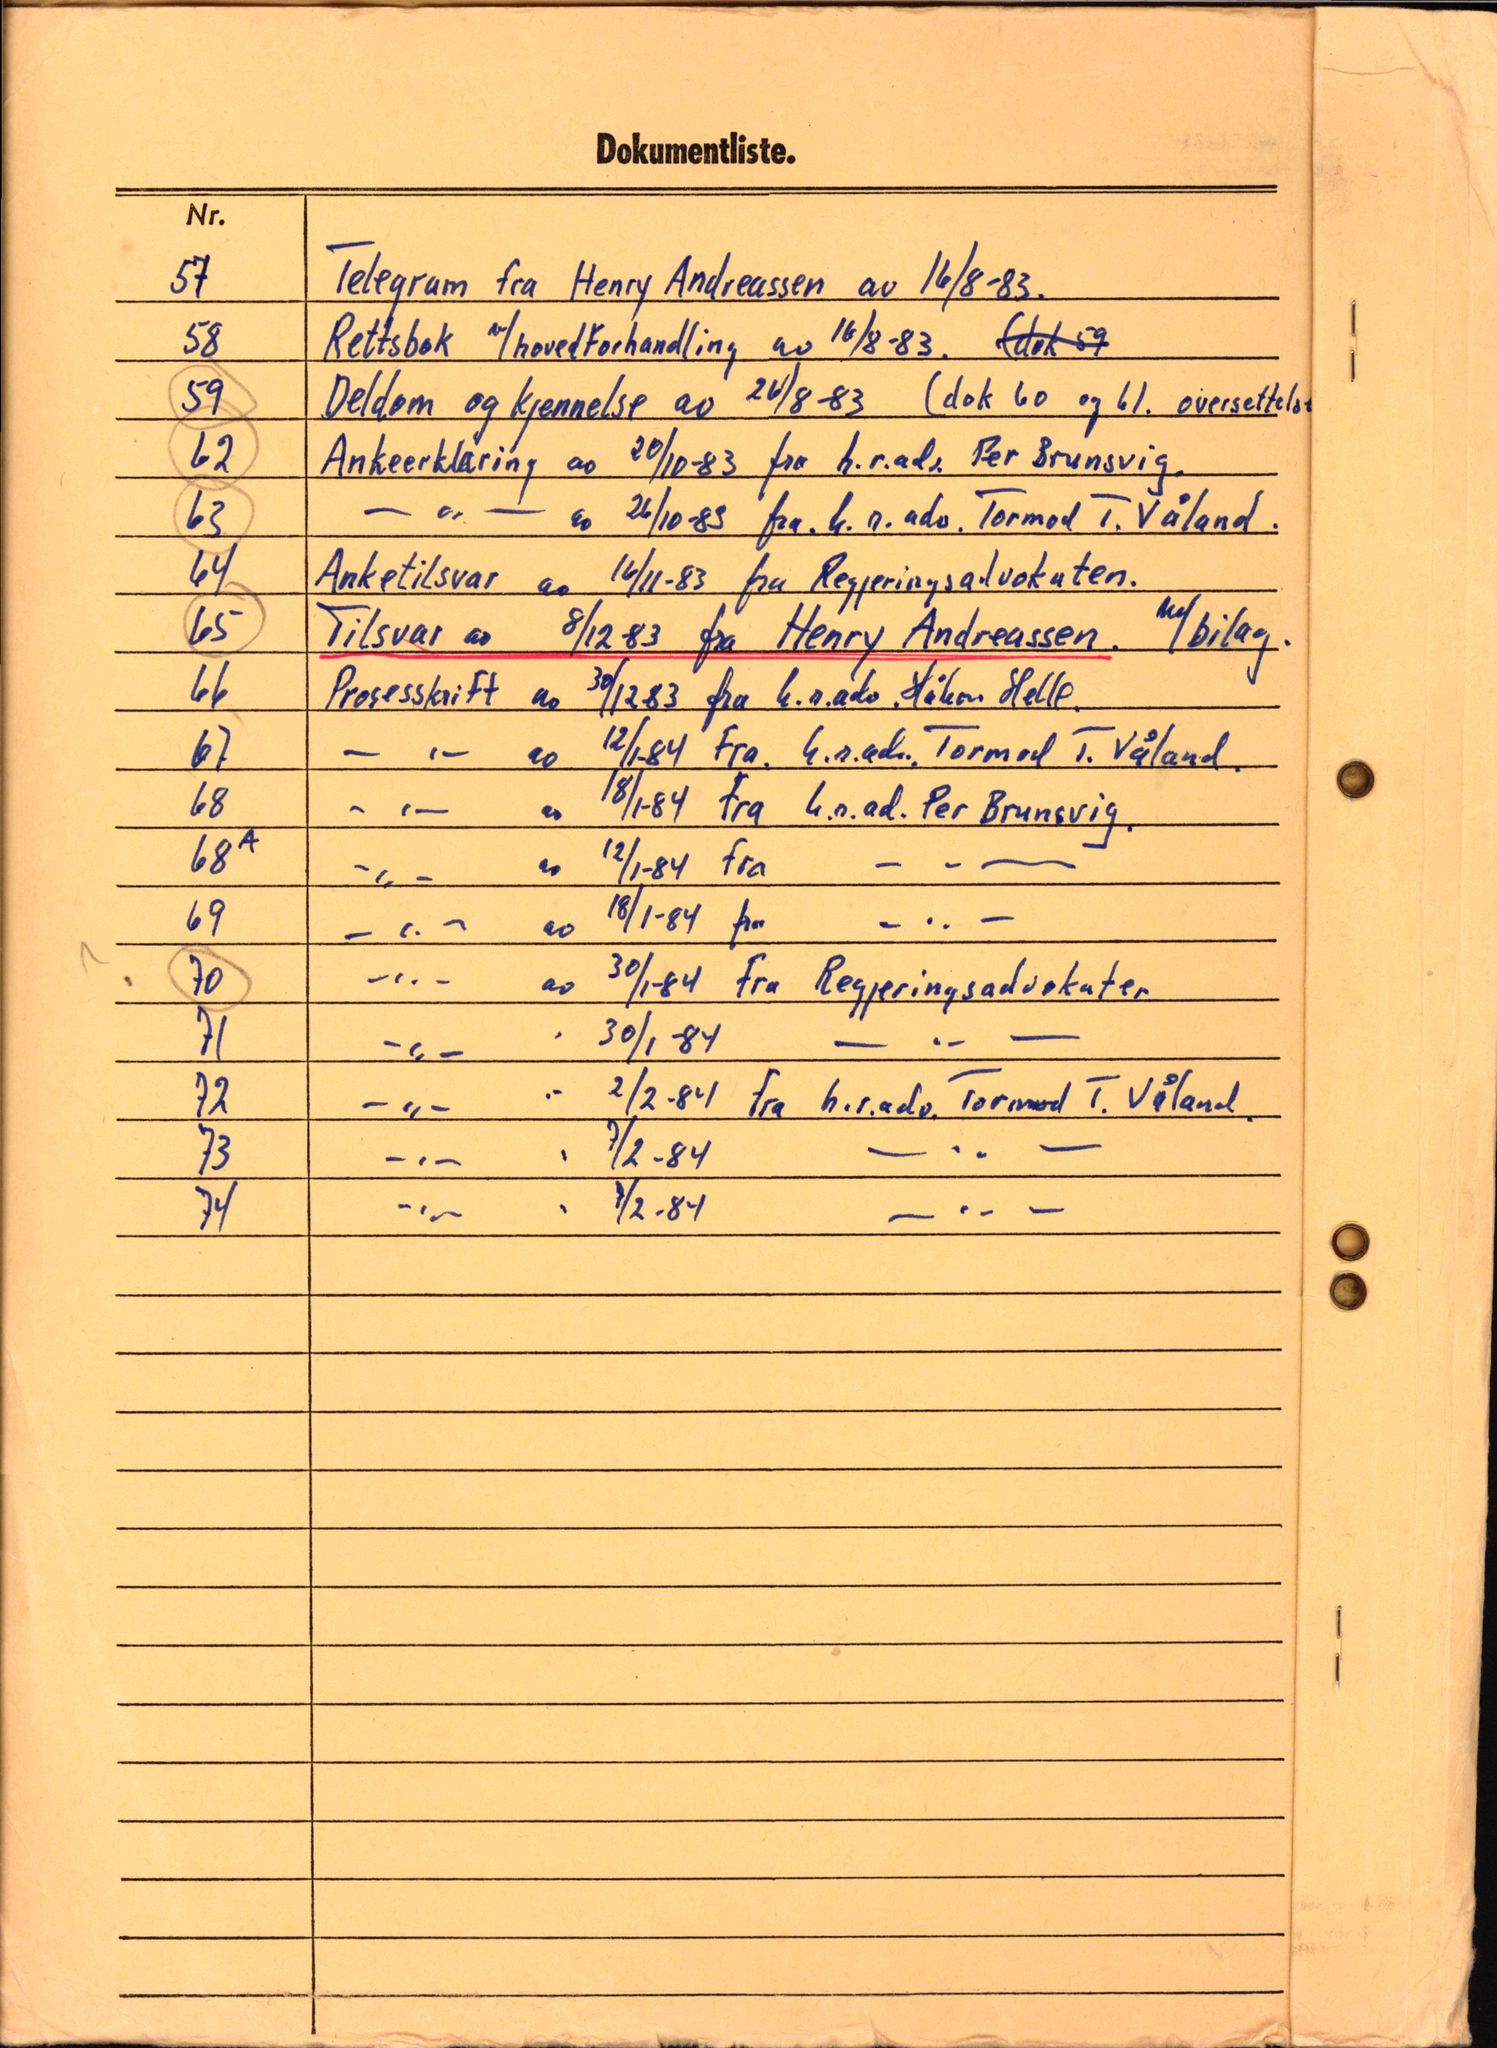 Dokumentliste.
Nr.
57 Telegram fra Henry Andreassen av 16/8-83.
58 Rettsbok v/hovedforhandling av 16/8-83. (dok 59
59 Deldom og kjennelse av 26/8-83 (dok 60 og 61. oversettelse
62 Ankeerklæring av 20/10-83 fra h.r.adv. Per Brunsvig.
63 — " — av 26/10-83 fra. h.r.adv. Tormod T. Våland.
64 Anketilsvar av 16/11-83 fra Regjeringsadvokaten.
65 Tilsvar av 8/12-83 fra Henry Andreassen. m/bilag.
66 Prosesskrift av 30/12-83 fra h.r.adv. Håkon Helle.
67 — " — av 12/1-84 Fra. h.r.adv. Tormod T. Våland.
68 - " — av 18/1-84 Fra h.r.ad. Per Brunsvig.
68A - " - av 12/1-84 Fra — " —
69 - " - av 18/1-84 fra - " -
70 - " - av 30/1-84 Fra Regjeringsadvokaten
71 - " - " 30/1-84 — " —
72 - " - " 2/2-84 Fra h.r.adv. Tormod T. Våland.
73 - " - " 7/2-84 — " —
74 - " - " 7/2-84 — " —